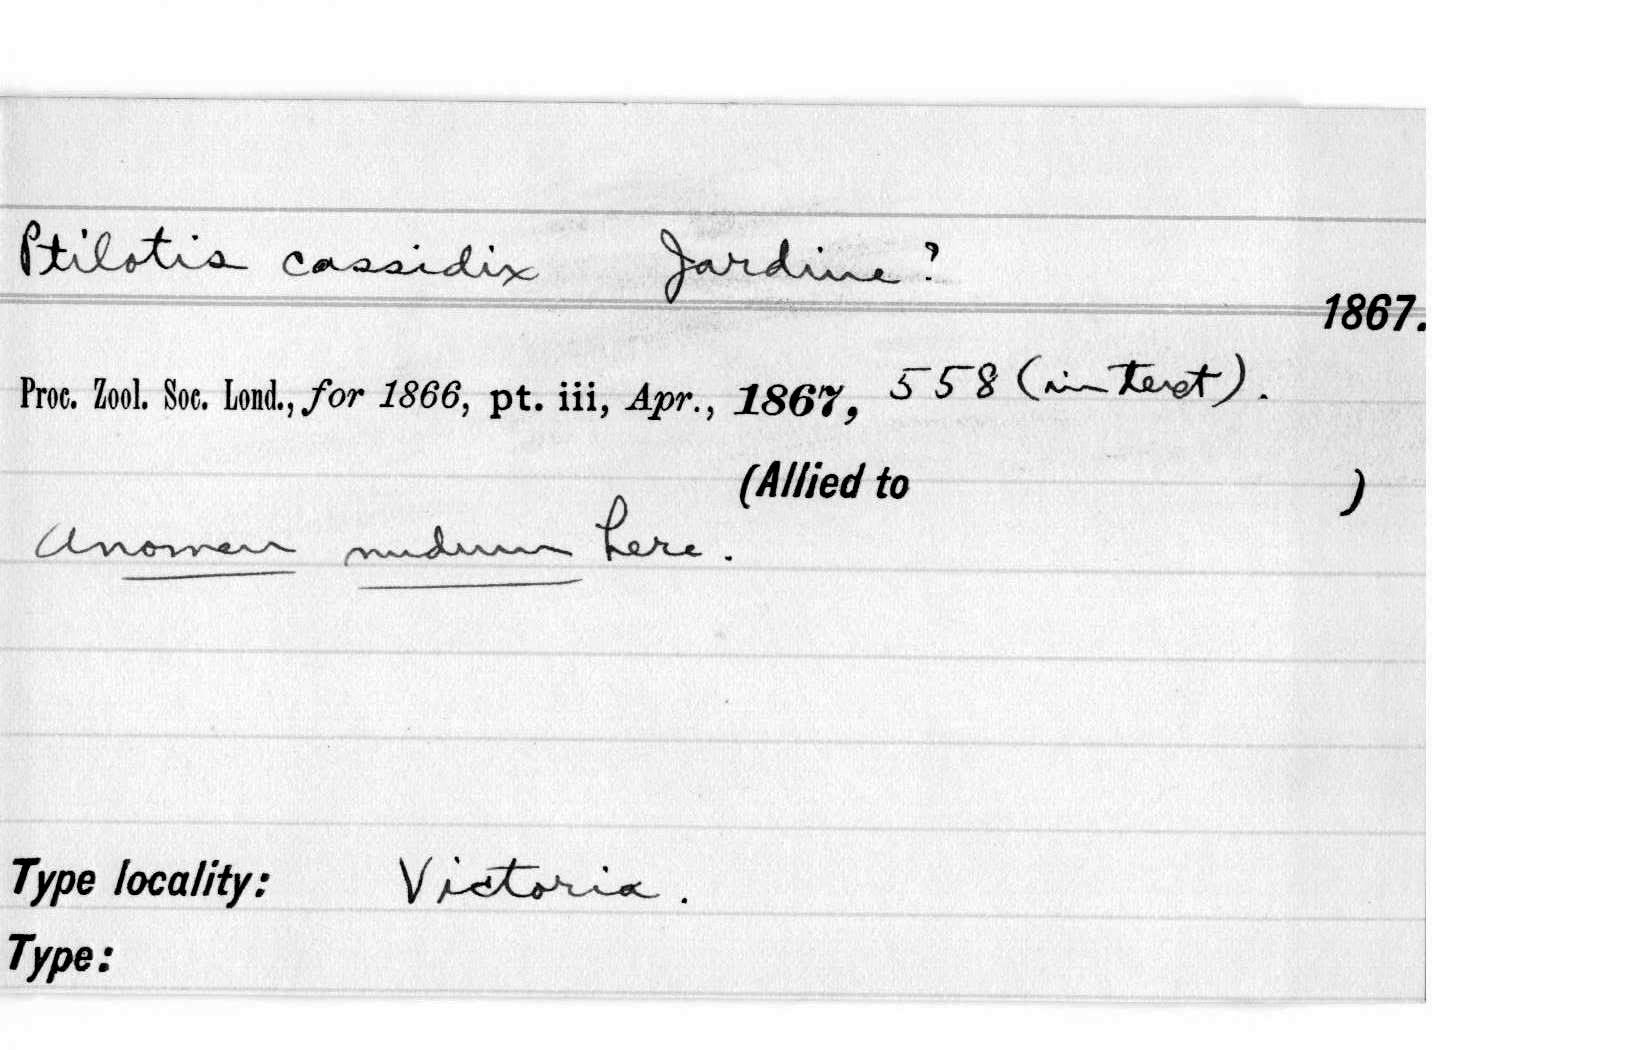 Ptilotis cassidix Jardine?
1867.
Proc. Zool. Soc. Lond., for 1866, pt. iii, Apr., 1867, 558 (in text).
(Allied to )
A nomen nudum here.
Type locality: Victoria.
Type: